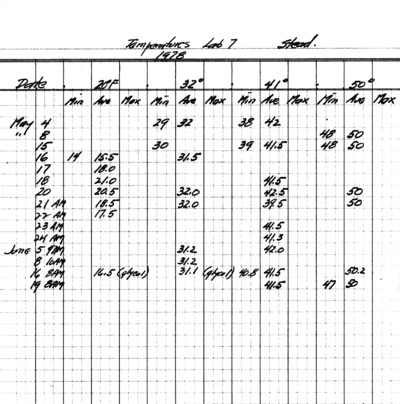 Temperatures Lab 7 Stead.
1978
Date 20°F 32° 41° 50°
Min Ave Max Min Ave Max Min Ave Max Min Ave Max
May 4 29 32 38 42
" 8 48 50
15 30 39 41.5 48 50
16 14 15.5 31.5
17 18.0
18 21.0 41.5
20 20.5 32.0 42.5 50
21 AM 18.5 32.0 39.5 50
22 AM 17.5
23 AM 41.5
24 AM 41.3
June 5 9AM 31.2 42.0
8 10AM 31.2
16 8AM 16.5 (glycol) 31.1 (glycol) 40.8 41.5 50.2
19 8AM 41.5 47 50